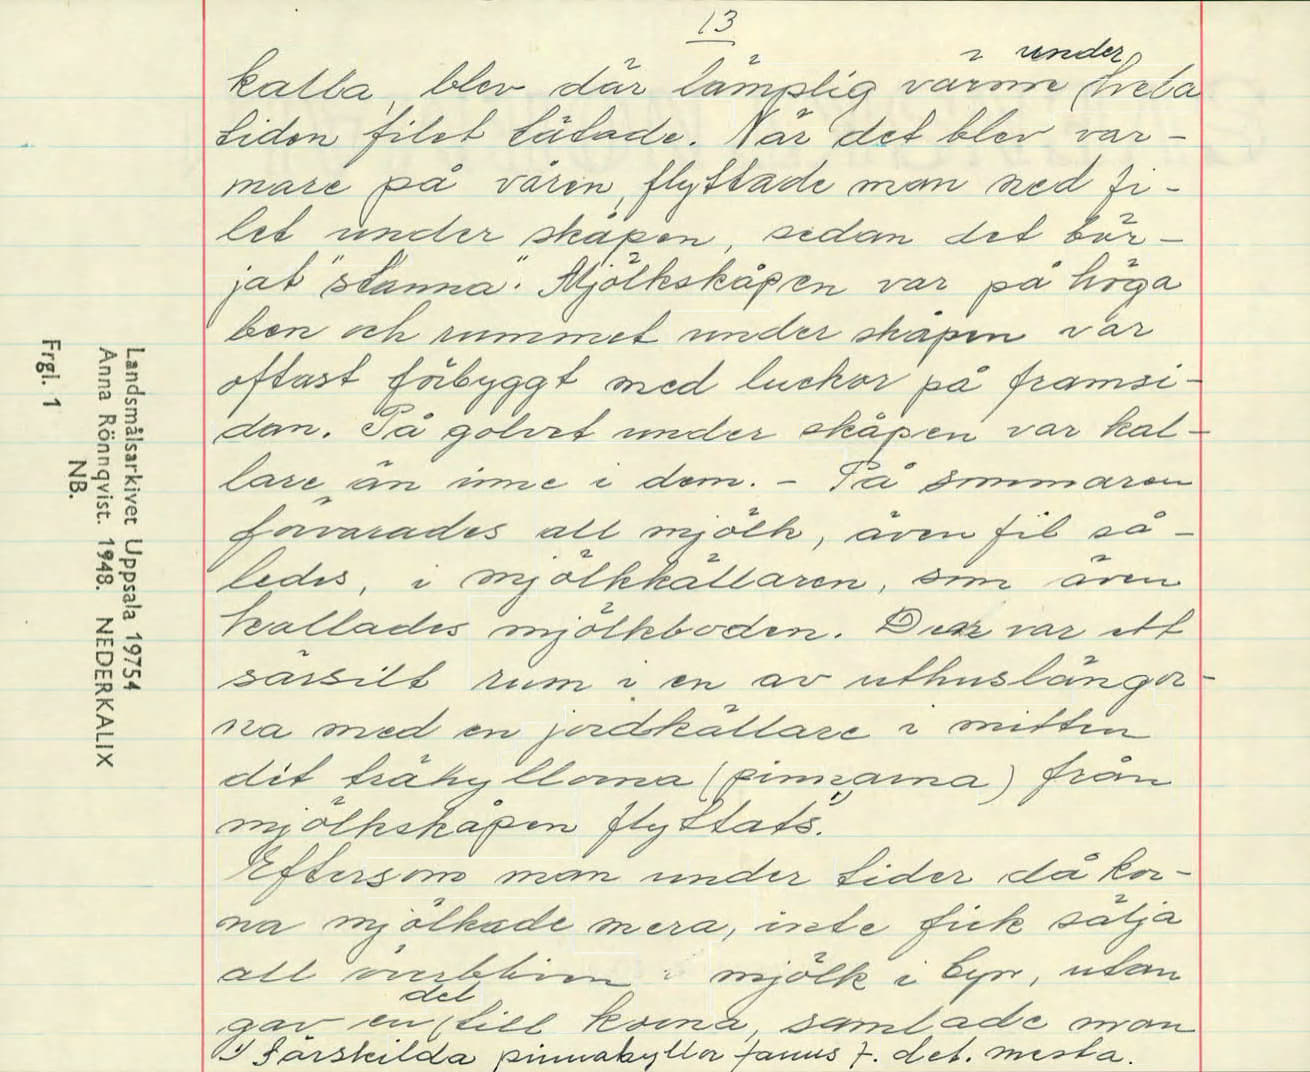 13
kalla, blev där lämplig värme under hela
tiden filet tätade. När det blev var-
mare på våren, flyttade man ned fi-
let under skåpen, sedan det bör-
jat "stanna". Mjölkskåpen var på höga
ben och rummet under skåpen var
oftast förbyggt med luckor på framsi-
dan. På golvet under skåpen var kal-
lare än inne i dem. - På sommaren
förvarades all mjölk, även fil så-
ledes, i mjölkkällaren, som även
kallades mjölkboden. Den var ett
särsilt rum i en av uthuslängor-
na med en jordkällare i mitten
dit trähyllorna (pinnarna) från
mjölkskåpen flyttats.¹⁾
Eftersom man under tider då kor-
na mjölkade mera, inte fick sälja
all överbliven mjölk i byn, utan
gav en del till korna, samlade man
¹⁾ Särskilda pinnahyllor fanns f. det. mesta.
Landsmålsarkivet Uppsala 19754
Anna Rönnqvist. 1948. NEDERKALIX
NB.
Frgl. 1